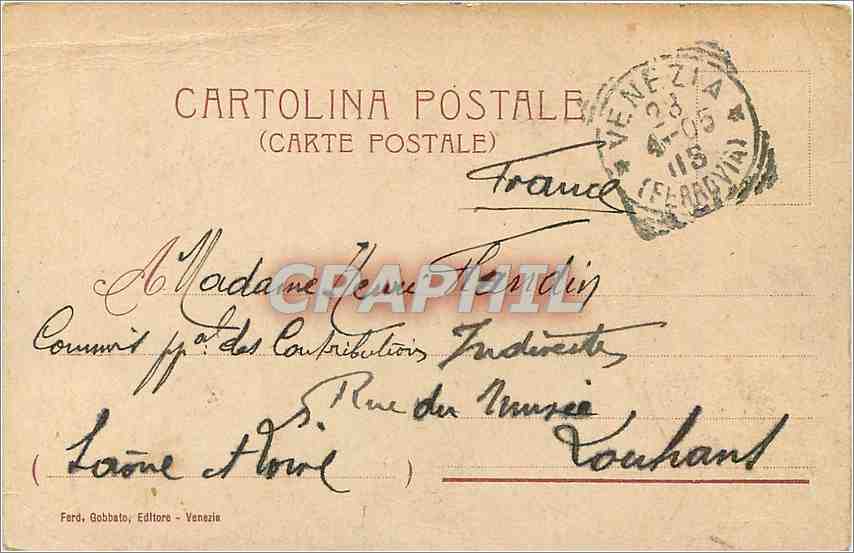 CARTOLINA POSTALE
(CARTE POSTALE)
VENEZIA
23
4-05
11S
(FERROVIA)
France
A Madame Henri Flandin
CPARHIL
Commis ppal des Contributions Indirectes
5 Rue du Musée
Louhans
(Saône et Loire)
Ferd. Gobbato, Editore - Venezia